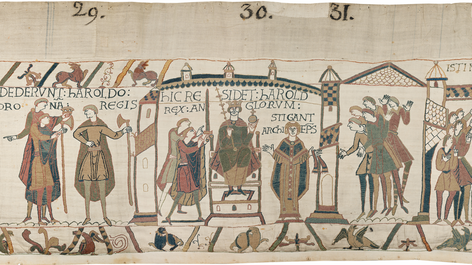 29. 30. 31.
DEDERVNT: hAROLDO:
CORO NA REGIS
hIC RE SIDET: hAROLD
REX: AN GLORVM:
STIGANT
ARChIEPS
ISTI